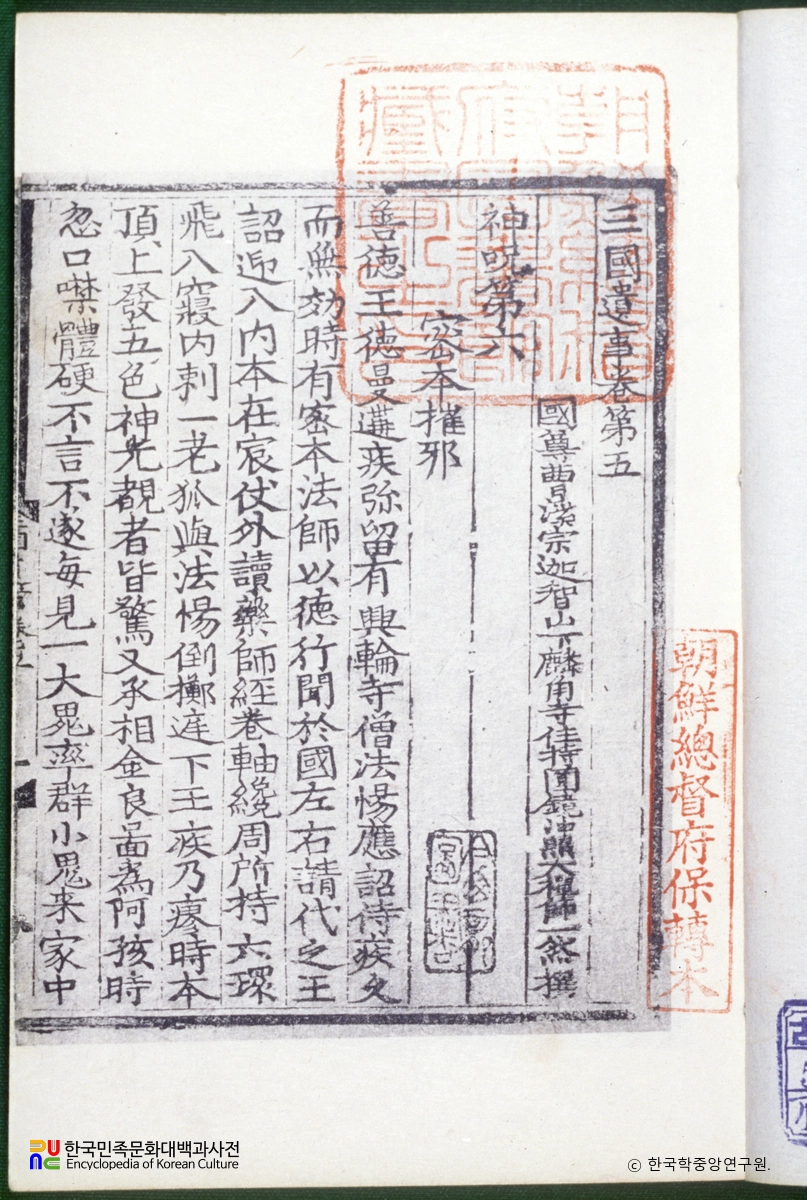 三國遺事卷第五
國尊曹溪宗迦智山下麟角寺住持圓鏡冲照大禪師一然撰
神呪第六
密本摧邪
善德王德曼遘疾弥留有興輪寺僧法惕應詔侍疾久
而無効時有密本法師以德行聞於國左右請代之王
詔迎入內本在宸仗外讀藥師經卷軸纔周所持六環
飛入寢內刺一老狐與法惕倒擲庭下王疾乃瘳時本
頂上發五色神光覩者皆驚又承相金良啚爲阿孩時
忽口噤體硬不言不遂每見一大鬼率群小鬼来家中
朝鮮總督府保轉本
한국민족문화대백과사전
Encyclopedia of Korean Culture
ⓒ 한국학중앙연구원.